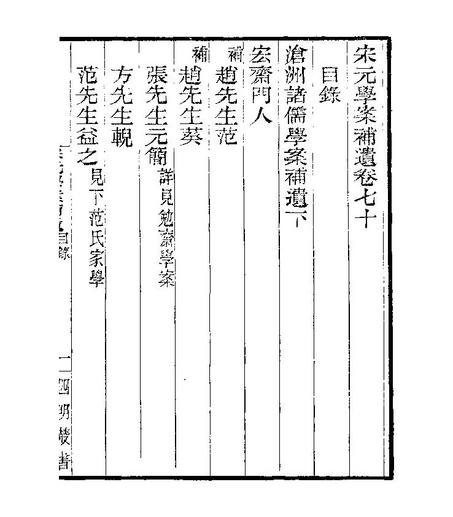 宋元學案補遺卷七十
目錄
滄洲諸儒學案補遺下
宏齋門人
補趙先生范
補趙先生葵
張先生元簡 詳見勉齋學案
方先生輗
范先生益之 見下范氏家學
目錄
一 四明叢書